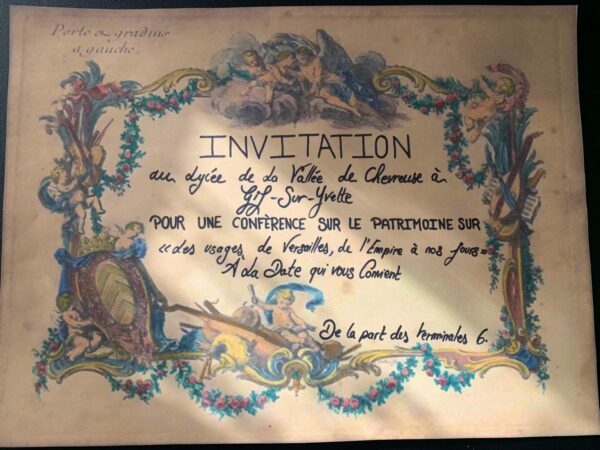 Porte et gradins
a gauche.
INVITATION
au Lycée de la Vallée de Chevreuse à
Gif-Sur-Yvette
POUR UNE CONFÈRENCE SUR LE PATRIMOINE SUR
«Les usages de Versailles, de l'Empire à nos jours»
A La Date qui vous Convient
De la part des terminales 6.